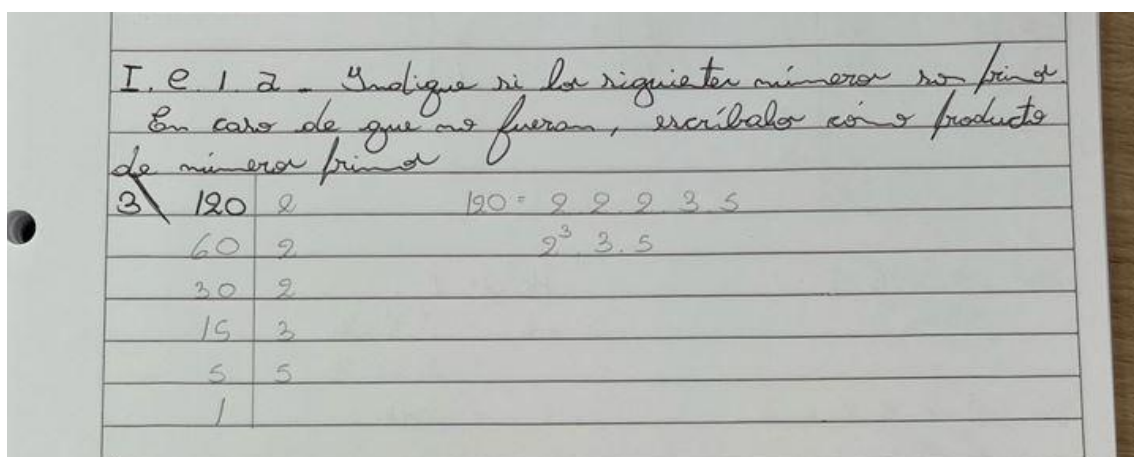 I. e. 1. 2 - Indique si los siguientes números son primos
En caso de que no fueran, escríbalos como producto
de números primos
3\ 120 | 2 120 = 2 2 2 3 . 5
60 | 2 2³. 3. 5
30 | 2
15 | 3
5 | 5
1